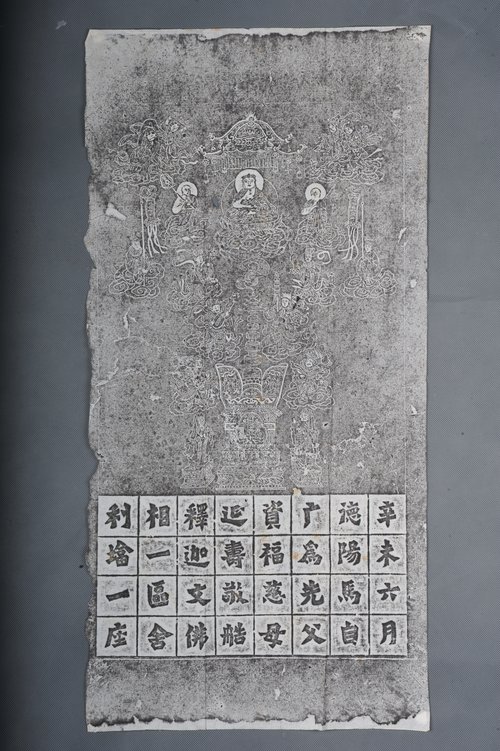 辛未六月
德陽馬自
广為先父
資福慈母
延壽敬艁
釋迦文佛
相一區舍
利墖一座